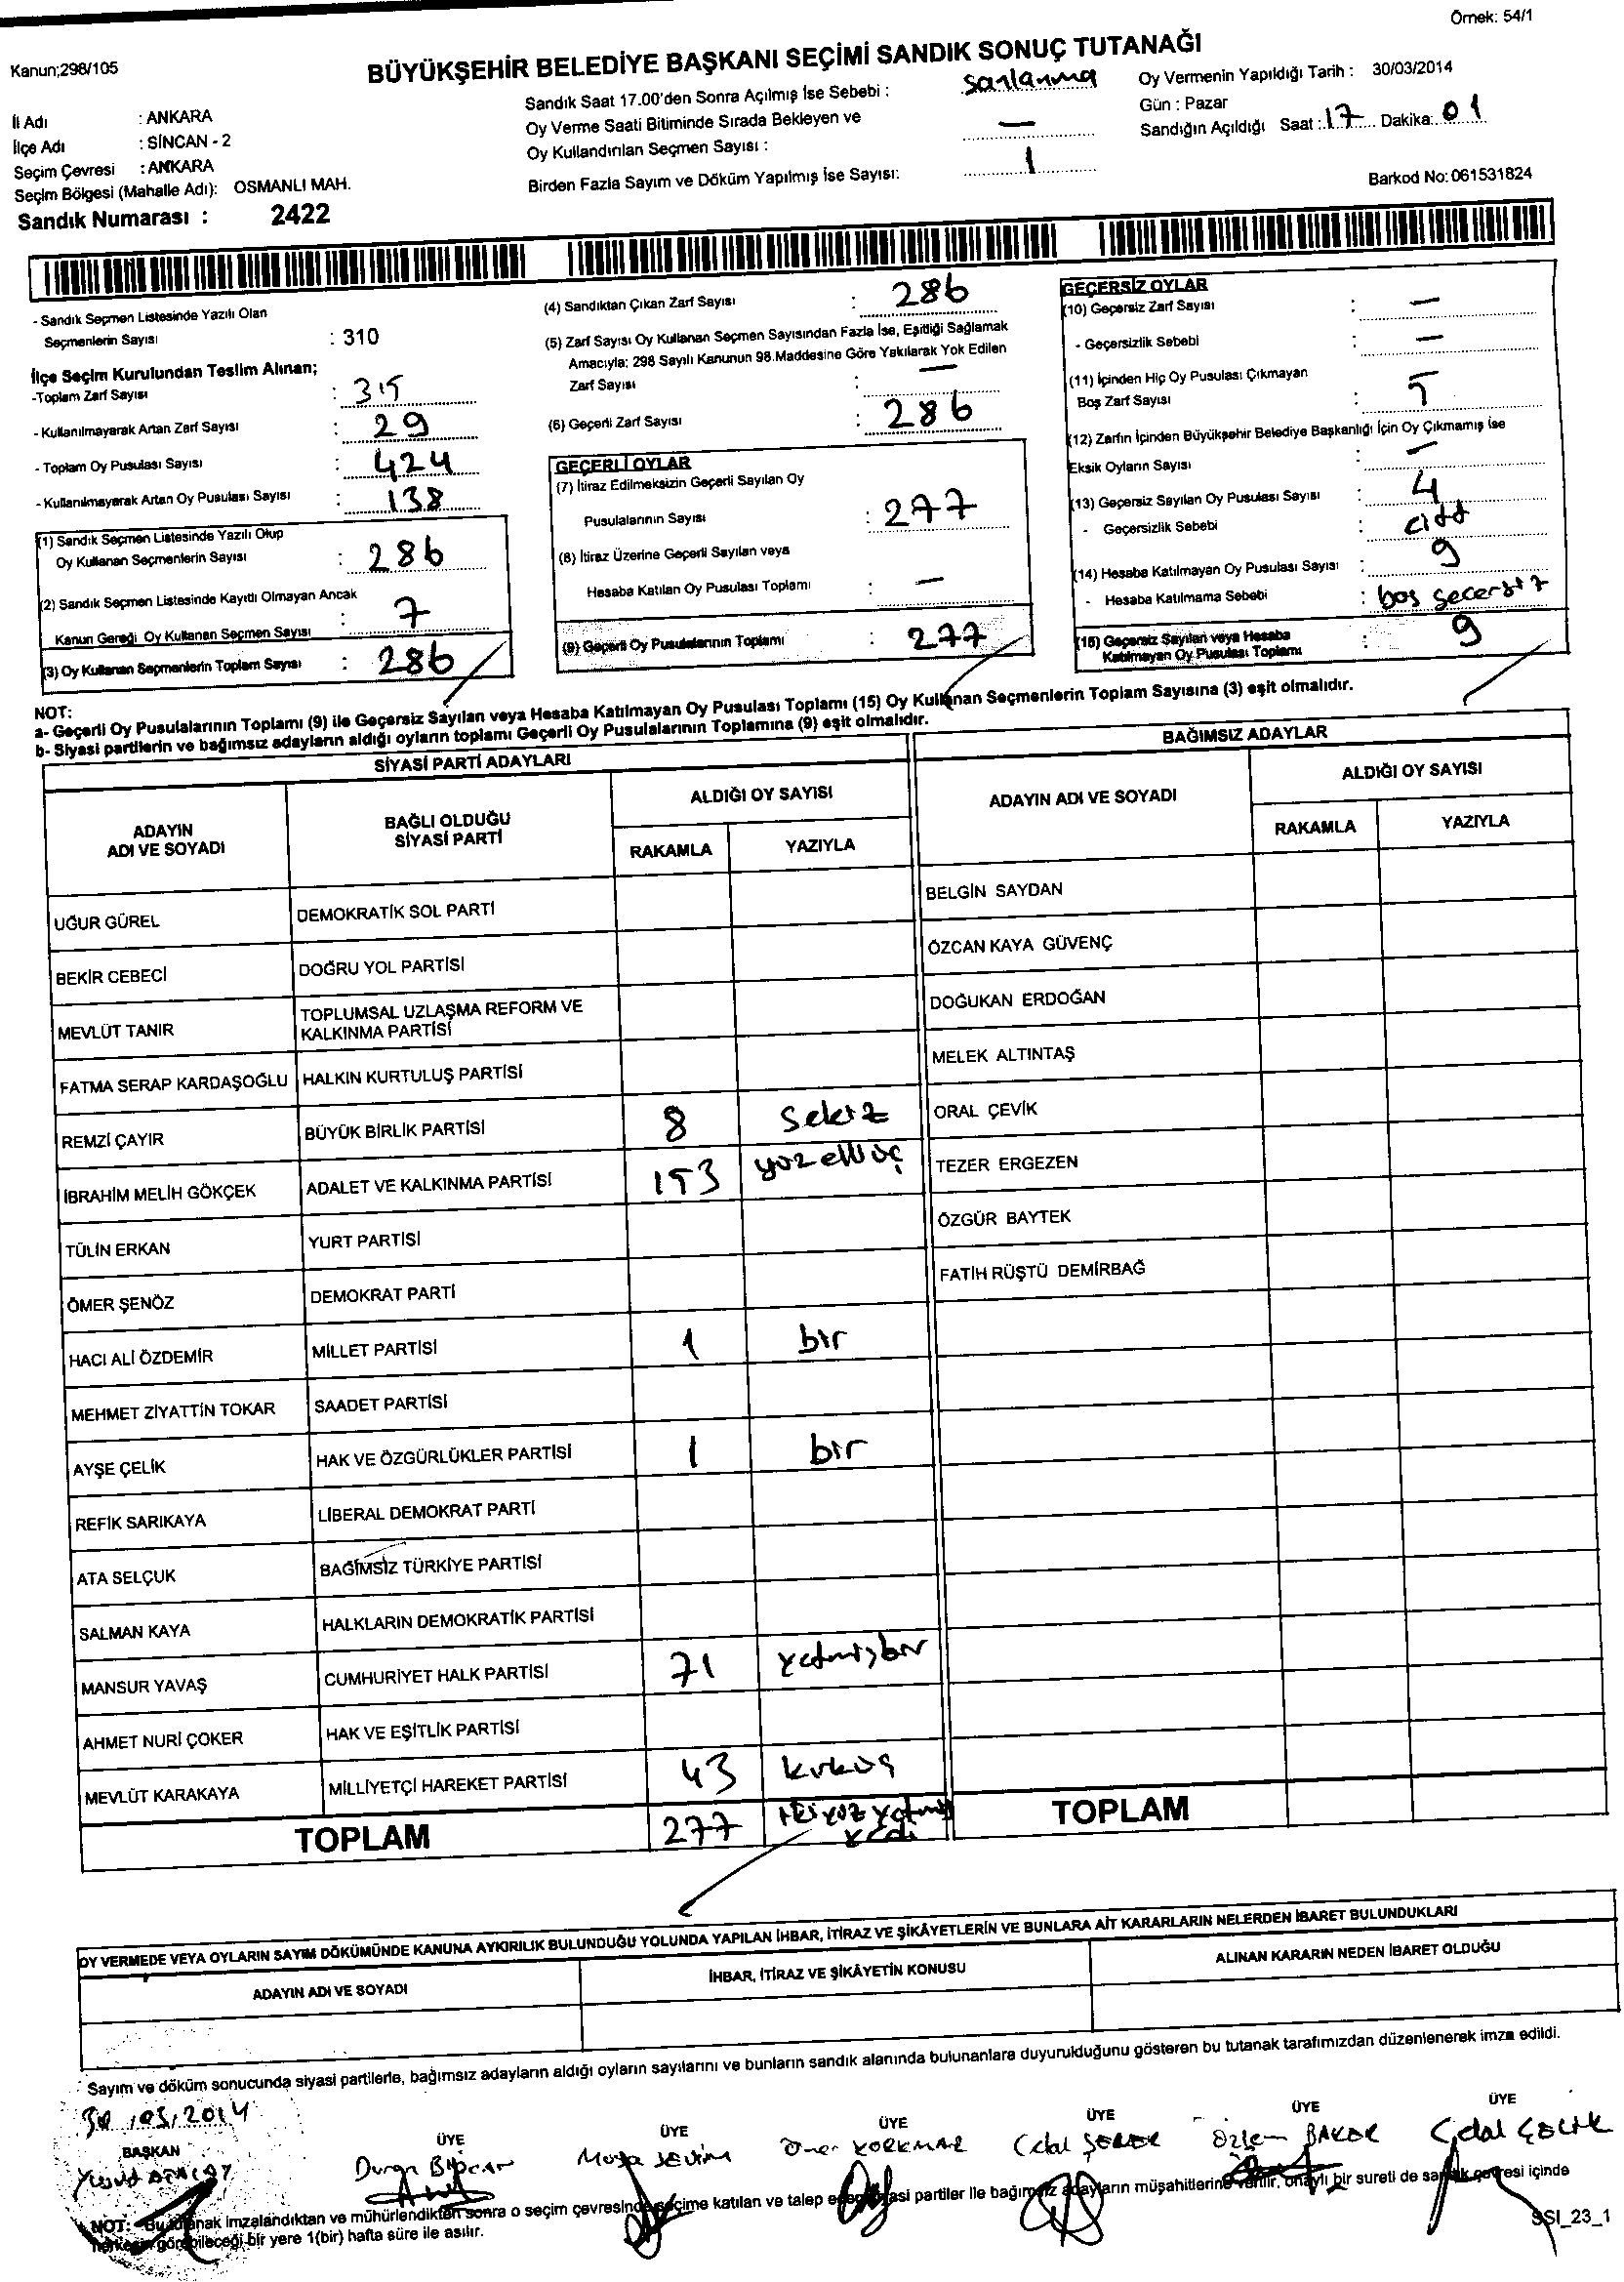 Örnek: 54/1
Kanun;298/105
BÜYÜKŞEHİR BELEDİYE BAŞKANI SEÇİMİ SANDIK SONUÇ TUTANAĞI
İl Adı : ANKARA
İlçe Adı : SİNCAN - 2
Seçim Çevresi : ANKARA
Seçim Bölgesi (Mahalle Adı): OSMANLI MAH.
Sandık Numarası : 2422
Sandık Saat 17.00'den Sonra Açılmış İse Sebebi :
Oy Verme Saati Bitiminde Sırada Bekleyen ve
Oy Kullandırılan Seçmen Sayısı : —
Birden Fazla Sayım ve Döküm Yapılmış İse Sayısı: 1
Oy Vermenin Yapıldığı Tarih : 30/03/2014
Gün : Pazar
Sandığın Açıldığı Saat : 17 Dakika: 01
Barkod No: 061531824
- Sandık Seçmen Listesinde Yazılı Olan
Seçmenlerin Sayısı : 310
İlçe Seçim Kurulundan Teslim Alınan;
-Toplam Zarf Sayısı : 315
- Kullanılmayarak Artan Zarf Sayısı : 29
- Toplam Oy Pusulası Sayısı : 424
- Kullanılmayarak Artan Oy Pusulası Sayısı : 138
(1) Sandık Seçmen Listesinde Yazılı Olup
Oy Kullanan Seçmenlerin Sayısı : 286
(2) Sandık Seçmen Listesinde Kayıtlı Olmayan Ancak
Kanun Gereği Oy Kullanan Seçmen Sayısı : 7
(3) Oy Kullanan Seçmenlerin Toplam Sayısı : 286
(4) Sandıktan Çıkan Zarf Sayısı : 286
(5) Zarf Sayısı Oy Kullanan Seçmen Sayısından Fazla İse, Eşitliği Sağlamak
Amacıyla: 298 Sayılı Kanunun 98.Maddesine Göre Yakılarak Yok Edilen
Zarf Sayısı : —
(6) Geçerli Zarf Sayısı : 286
GEÇERLİ OYLAR
(7) İtiraz Edilmeksizin Geçerli Sayılan Oy
Pusulalarının Sayısı : 277
(8) İtiraz Üzerine Geçerli Sayılan veya
Hesaba Katılan Oy Pusulası Toplamı : —
(9) Geçerli Oy Pusulalarının Toplamı : 277
GEÇERSİZ OYLAR
(10) Geçersiz Zarf Sayısı : —
- Geçersizlik Sebebi : —
(11) İçinden Hiç Oy Pusulası Çıkmayan
Boş Zarf Sayısı : 5
(12) Zarfın İçinden Büyükşehir Belediye Başkanlığı İçin Oy Çıkmamış ise
Eksik Oyların Sayısı : —
(13) Geçersiz Sayılan Oy Pusulası Sayısı : 4
- Geçersizlik Sebebi : cift
(14) Hesaba Katılmayan Oy Pusulası Sayısı : 9
- Hesaba Katılmama Sebebi : boş gecersiz
(15) Geçersiz Sayılan veya Hesaba
Katılmayan Oy Pusulası Toplamı : 9
NOT:
a- Geçerli Oy Pusulalarının Toplamı (9) ile Geçersiz Sayılan veya Hesaba Katılmayan Oy Pusulası Toplamı (15) Oy Kullanan Seçmenlerin Toplam Sayısına (3) eşit olmalıdır.
b- Siyasi partilerin ve bağımsız adayların aldığı oyların toplamı Geçerli Oy Pusulalarının Toplamına (9) eşit olmalıdır.
SİYASİ PARTİ ADAYLARI
ADAYIN ADI VE SOYADI BAĞLI OLDUĞU SİYASİ PARTİ ALDIĞI OY SAYISI
RAKAMLA YAZIYLA
UĞUR GÜREL DEMOKRATİK SOL PARTİ
BEKİR CEBECİ DOĞRU YOL PARTİSİ
MEVLÜT TANIR TOPLUMSAL UZLAŞMA REFORM VE KALKINMA PARTİSİ
FATMA SERAP KARDAŞOĞLU HALKIN KURTULUŞ PARTİSİ
REMZİ ÇAYIR BÜYÜK BİRLİK PARTİSİ 8 sekiz
İBRAHİM MELİH GÖKÇEK ADALET VE KALKINMA PARTİSİ 153 yüzelliüç
TÜLİN ERKAN YURT PARTİSİ
ÖMER ŞENÖZ DEMOKRAT PARTİ
HACI ALİ ÖZDEMİR MİLLET PARTİSİ 1 bir
MEHMET ZİYATTİN TOKAR SAADET PARTİSİ
AYŞE ÇELİK HAK VE ÖZGÜRLÜKLER PARTİSİ 1 bir
REFİK SARIKAYA LİBERAL DEMOKRAT PARTİ
ATA SELÇUK BAĞIMSIZ TÜRKİYE PARTİSİ
SALMAN KAYA HALKLARIN DEMOKRATİK PARTİSİ
MANSUR YAVAŞ CUMHURİYET HALK PARTİSİ 71 yetmişbir
AHMET NURİ ÇOKER HAK VE EŞİTLİK PARTİSİ
MEVLÜT KARAKAYA MİLLİYETÇİ HAREKET PARTİSİ 43 kırküç
TOPLAM 277 ikiyüz yetmiş yedi
BAĞIMSIZ ADAYLAR
ADAYIN ADI VE SOYADI ALDIĞI OY SAYISI
RAKAMLA YAZIYLA
BELGİN SAYDAN
ÖZCAN KAYA GÜVENÇ
DOĞUKAN ERDOĞAN
MELEK ALTINTAŞ
ORAL ÇEVİK
TEZER ERGEZEN
ÖZGÜR BAYTEK
FATİH RÜŞTÜ DEMİRBAĞ
TOPLAM
OY VERMEDE VEYA OYLARIN SAYIM DÖKÜMÜNDE KANUNA AYKIRILIK BULUNDUĞU YOLUNDA YAPILAN İHBAR, İTİRAZ VE ŞİKÂYETLERİN VE BUNLARA AİT KARARLARIN NELERDEN İBARET BULUNDUKLARI
ADAYIN ADI VE SOYADI İHBAR, İTİRAZ VE ŞİKÂYETİN KONUSU ALINAN KARARIN NEDEN İBARET OLDUĞU
Sayım ve döküm sonucunda siyasi partilerle, bağımsız adayların aldığı oyların sayılarını ve bunların sandık alanında bulunanlara duyurulduğunu gösteren bu tutanak tarafımızdan düzenlenerek imza edildi.
30.03.2014
BAŞKAN ÜYE ÜYE ÜYE ÜYE ÜYE ÜYE
Musa SEVİM Ömer KORKMAZ Celal Özlem Celal ÇELİK
NOT: Bu tutanak imzalandıktan ve mühürlendikten sonra o seçim çevresinde seçime katılan ve talep eden siyasi partiler ile bağımsız adayların müşahitlerine verilir, onaylı bir sureti de sandık çevresi içinde
herkesin görebileceği bir yere 1(bir) hafta süre ile asılır.
SSI_23_1